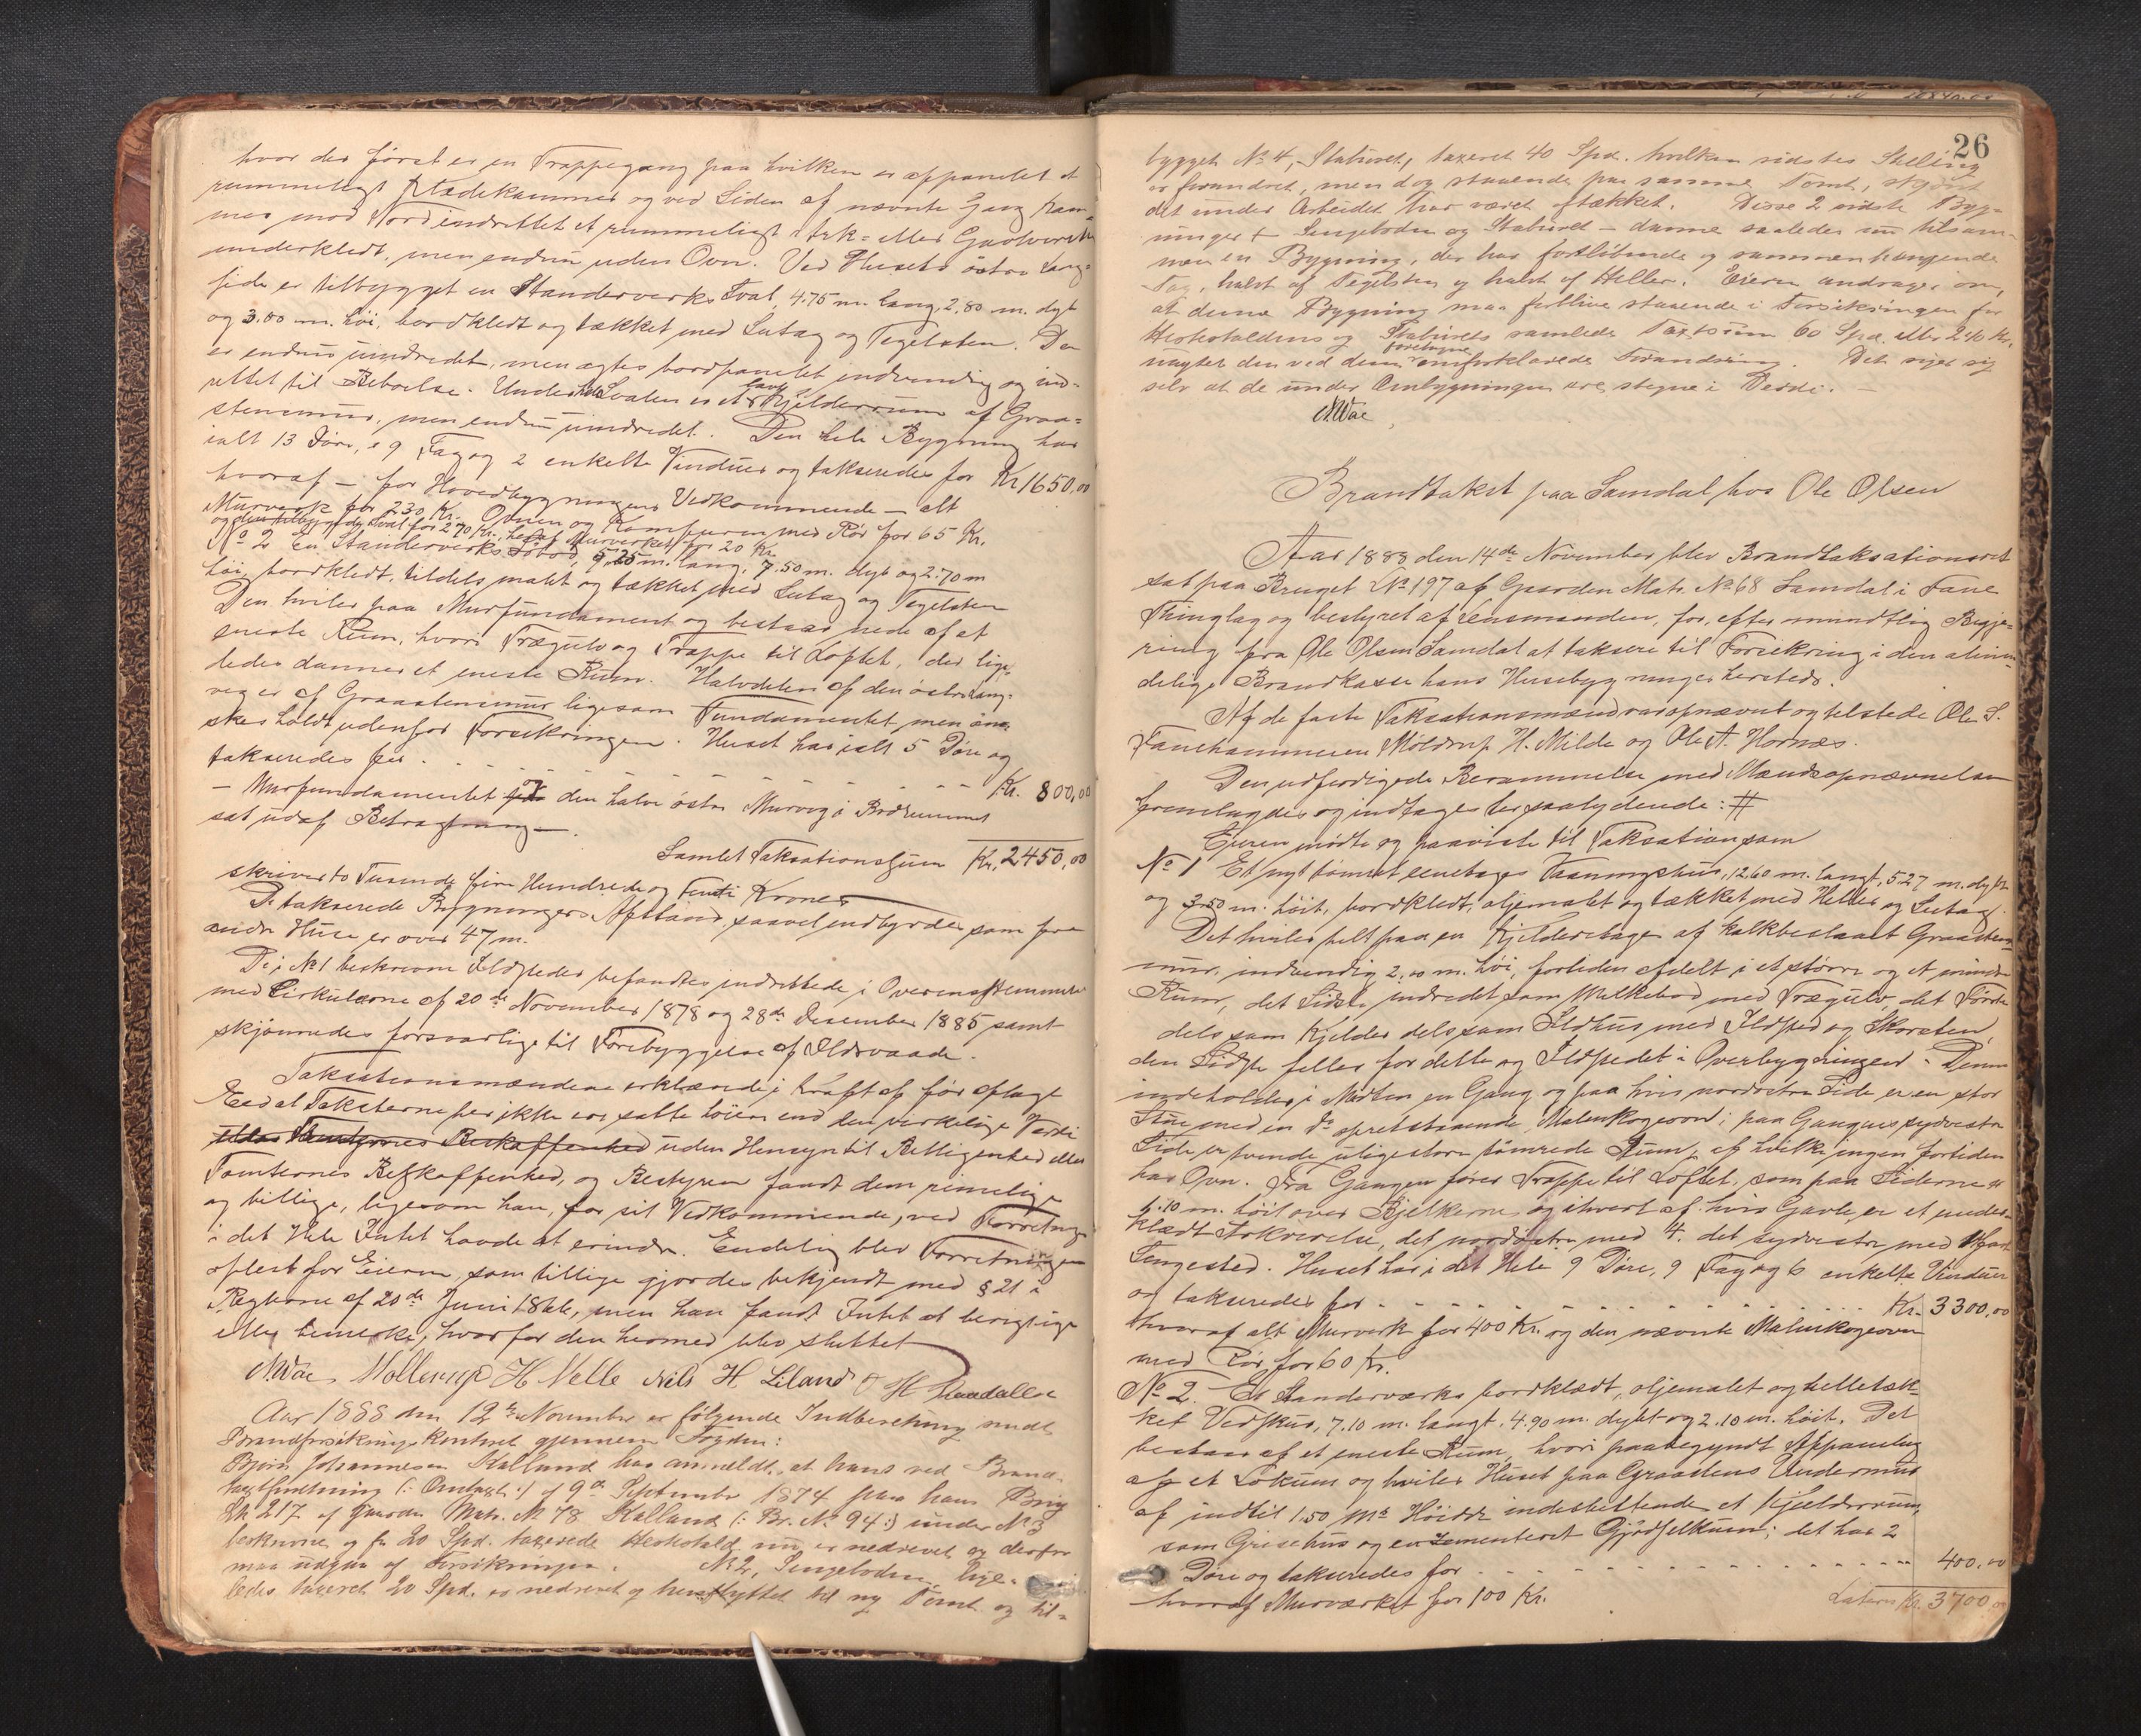 hvor der først er en Trappegang paa hvilken er oppandlet et
rummeligt Klædekammer og ved Siden af nævnte Gang kam-
mer mod Nord indrettet et rummeligt Ark- eller Gavlværelse
underklædt, men endnu uden Ovn. Ved Husets östre Lang-
side er tilbygget en Standerværks Sval, 4.75 m. lang, 2,80 m. dyb
og 3.00 m. höi, bordklædt og tækket med Sutag og Tegelsten. Den
er endnu uindredet, men agtes bordpanelet indvendig og ind-
rettet til Beboelse. Under Svalen er et Kjelderrum af Graa-
stensmur, men endnu uindredet. Den hele Bygning har
ialt 13 Döre, 9 Fag og 2 enkelte Vinduer og takseredes for Kr 1650,00
hvoraf – for Hovedbygningens Vedkommende – alt
Murværk for 230 Kr. Ovnen og Komfuren med Rör for 65 Kr.
og den tilbyggede Sval for 270 Kr., heraf Murværket for 20 Kr.
No 2 En Standerværks Stod, 9,25 m. lang, 7.50 m. dyb og 2.70 m
höi bordklædt, tildels malet og tækket med Sutag og Tegelsten
Den hviler paa Murfundament og bestaar nede af et
eneste Rum, hvori Trægulv og Trappe til Loftet, der lige-
ledes danner et eneste Rum. Halvdelen af den östre Lang-
væg er af Graastensmur ligesom Fundamentet, men önsk-
skes holdt udenfor Forsikringen. Huset har ialt 5 Döre og
takseredes for . . . . . . . . Kr. 800,00
– Murfundamentet og den halve östre Murvæg i Bodrummet
sat udaf Betragtning –.
Samlet Taksationssum Kr. 2450,00
skriver to Tusinde fire Hundrede og Femti Kroner
De takserede Bygningers Afstand saavel indbyrdes som fra
andre Huse er over 47 m.
De i No 1 beskrevne Ildsteder befandtes indrettede i Overensstemmelse
med Cirkulærne af 20de November 1878 og 28de Desember 1885 samt
skjönnedes forsvarlige til Forebyggelse af Ildsvaade.
Taksationsmændene erklærede i Kraft af før aflagt
Eed at Taksterne her ikke var satte höiere end den virkelige Værdi
eller Tomternes Beskaffenhed uden Hensyn til Rettigheder eller
Tomternes Beskaffenhed, og Bestyreren fandt dem rimelige
og billige, ligesom han, for sit Vedkommende, ved Forretningen
i det Hele Intet havde at erindre. Endelig blev Forretningen
oplæst for Eieren, som tillige gjordes bekjendt med § 21 i
Reglerne af 20de Juni 1866, men han fandt Intet at berigtige
eller bemerke, hvorfor den hermed blev sluttet
N. Wae Mollerup H Nelle Nils H. Liland
Aar 1888 den 12te November er følgende Indberetning sendt
Brandforsikringskontoret gjennem Fogden:
Björn Johannesen Kalland har anmeldt, at hans ved Brand-
taxtforretning (: Omtaxt :) af 9de September 1874 paa hans Brug
Lb 217 af Gaarden Matr. No 78 Kalland (: Br. No 94 :) under No 3
beskrevne og for 20 Spd. taxerede Hestestald nu er nedrevet og derfor
maa udgaa af Forsikringen. No 2, Sengeboden, lige-
ledes taxeret 20 Spd. er nedrevet og henflyttet til ny Tomt og til-
26
bygget No 4, Staburet, taxeret 40 Spd. hvilken sidstes Stilling
er forandret, men dog staaende paa samme Tomt, skjönt
det under Arbeidet har været aftækket. Disse 2 sidste Byg-
ninger – Sengeboden og Staburet – danne saaledes nu tilsam-
men en Bygning, der har fortløbende og sammenhængende
Tag, halvt af Tegelsten og halvt af Heller. Eieren andrager om,
at denne Bygning maa forblive staaende i Forsikringen for
Hestestaldens og Staburets samlede Taxtsum 60 Spd. eller 240 Kr.
uagtet den ved dem foretagne omforklarede Forandring. Det siger sig
selv at de under Ombygningen ere stegne i Værdi. –
N. Wae
Brandtakst paa Samdal hos Ole Olsen
Aar 1888 den 14de November blev Brandtaksationsret
sat paa Bruget L No 197 af Gaarden Matr. No 68 Samdal i Fane
Thinglag og bestyret af Lensmanden, for, efter mundtlig Begjæ-
ring fra Ole Olsen Samdal at taksere til Forsikring i den almin-
delige Brandkasse hans Husebygninger hersteds.
Af de faste Taksationsmænd var opnævnt og tilstede Ole S.
Fanehammeren Möldrup H. Milde og Ole A. Hornæs.
Den udfærdigede Berammelse med Mændsopnævnelse
fremlagdes og indtages her saalydende: #
Eieren mødte og paaviste til Taksation som
No 1 Et nyt tømret eenetages Vaaningshus, 12,60 m. langt, 5.27 m. dybt
og 3.50 m. höit, bordklædt, oljemalet og tækket med Heller og Sutag.
Det hviler helt paa en Kjelderetage af kalkbeslaaet Graastens-
mur, indvendig 2,10 m. höi, fortiden afdelt i et større og et mindre
Rum, det Sidste indredet som Melkebod med Trægulv, det Første
dels som Kjelder dels som Ildhus med Ildsted og Skorsten,
den Sidste felles for dette og Ildstedet i Overbygningen. Denne
indeholder i Midten en Gang og paa hvis nordøstre Side er en stor
Stue med en do opretstaaende Malmkogeovn; paa Gangens sydvestre
Side er tvende uligestore tömrede Rum, af hvilke ingen fortiden
har Ovn. Fra Gangen fører Trappe til Loftet, som paa Siderne er
1.10 m. höit over Bjelkerne, og i hvert af hvis Gavle er et under-
klædt Arkværelse, det nordøstre med 4. det sydvestre med 1 fast
Sengested. Huset har i det Hele 9 Döre, 9 Fag og 6 enkelte Vinduer
og takseredes for . . . . . . . . . . Kr. 3300,00
hvoraf alt Murverk for 400 Kr. og den nævnte Malmkogeovn
med Rör for 60 Kr.
No 2. Et Standerværks bordklædt, oljemalet og helletæk-
ket Vedskur, 7.10 m. langt, 4.90 m. dybt og 2.10 m. höit. Det
bestaar af et eneste Rum, hvori paabegyndt Afpaneling
af et Lokum og hviler Huset paa Graastens Undermur
af indtil 1.50 mr Höide indesluttende et Kjelderrum,
som Grisehus og en zementeret Gjödselkum; det har 2
Döre og takseredes for . . . . . . . . . . 400,00
hvoraf Murværket for 100 Kr.
Latere Kr. 3700,00